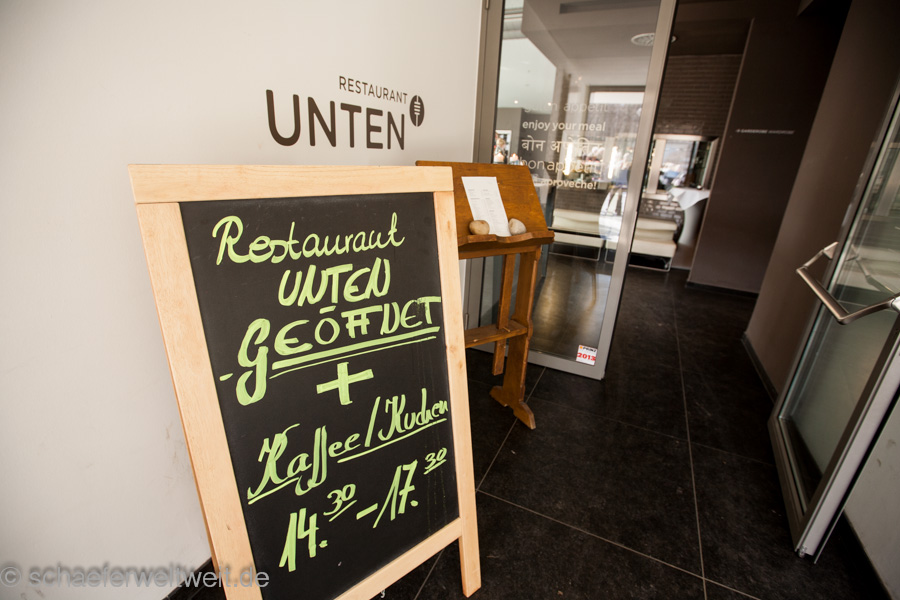 RESTAURANT
UNTEN
Restaurant
UNTEN
GEÖFFNET
+
Kaffee/Kuchen
14.30 - 17.30
enjoy your meal
bon appetit
2013
© schaeferweltweit.de